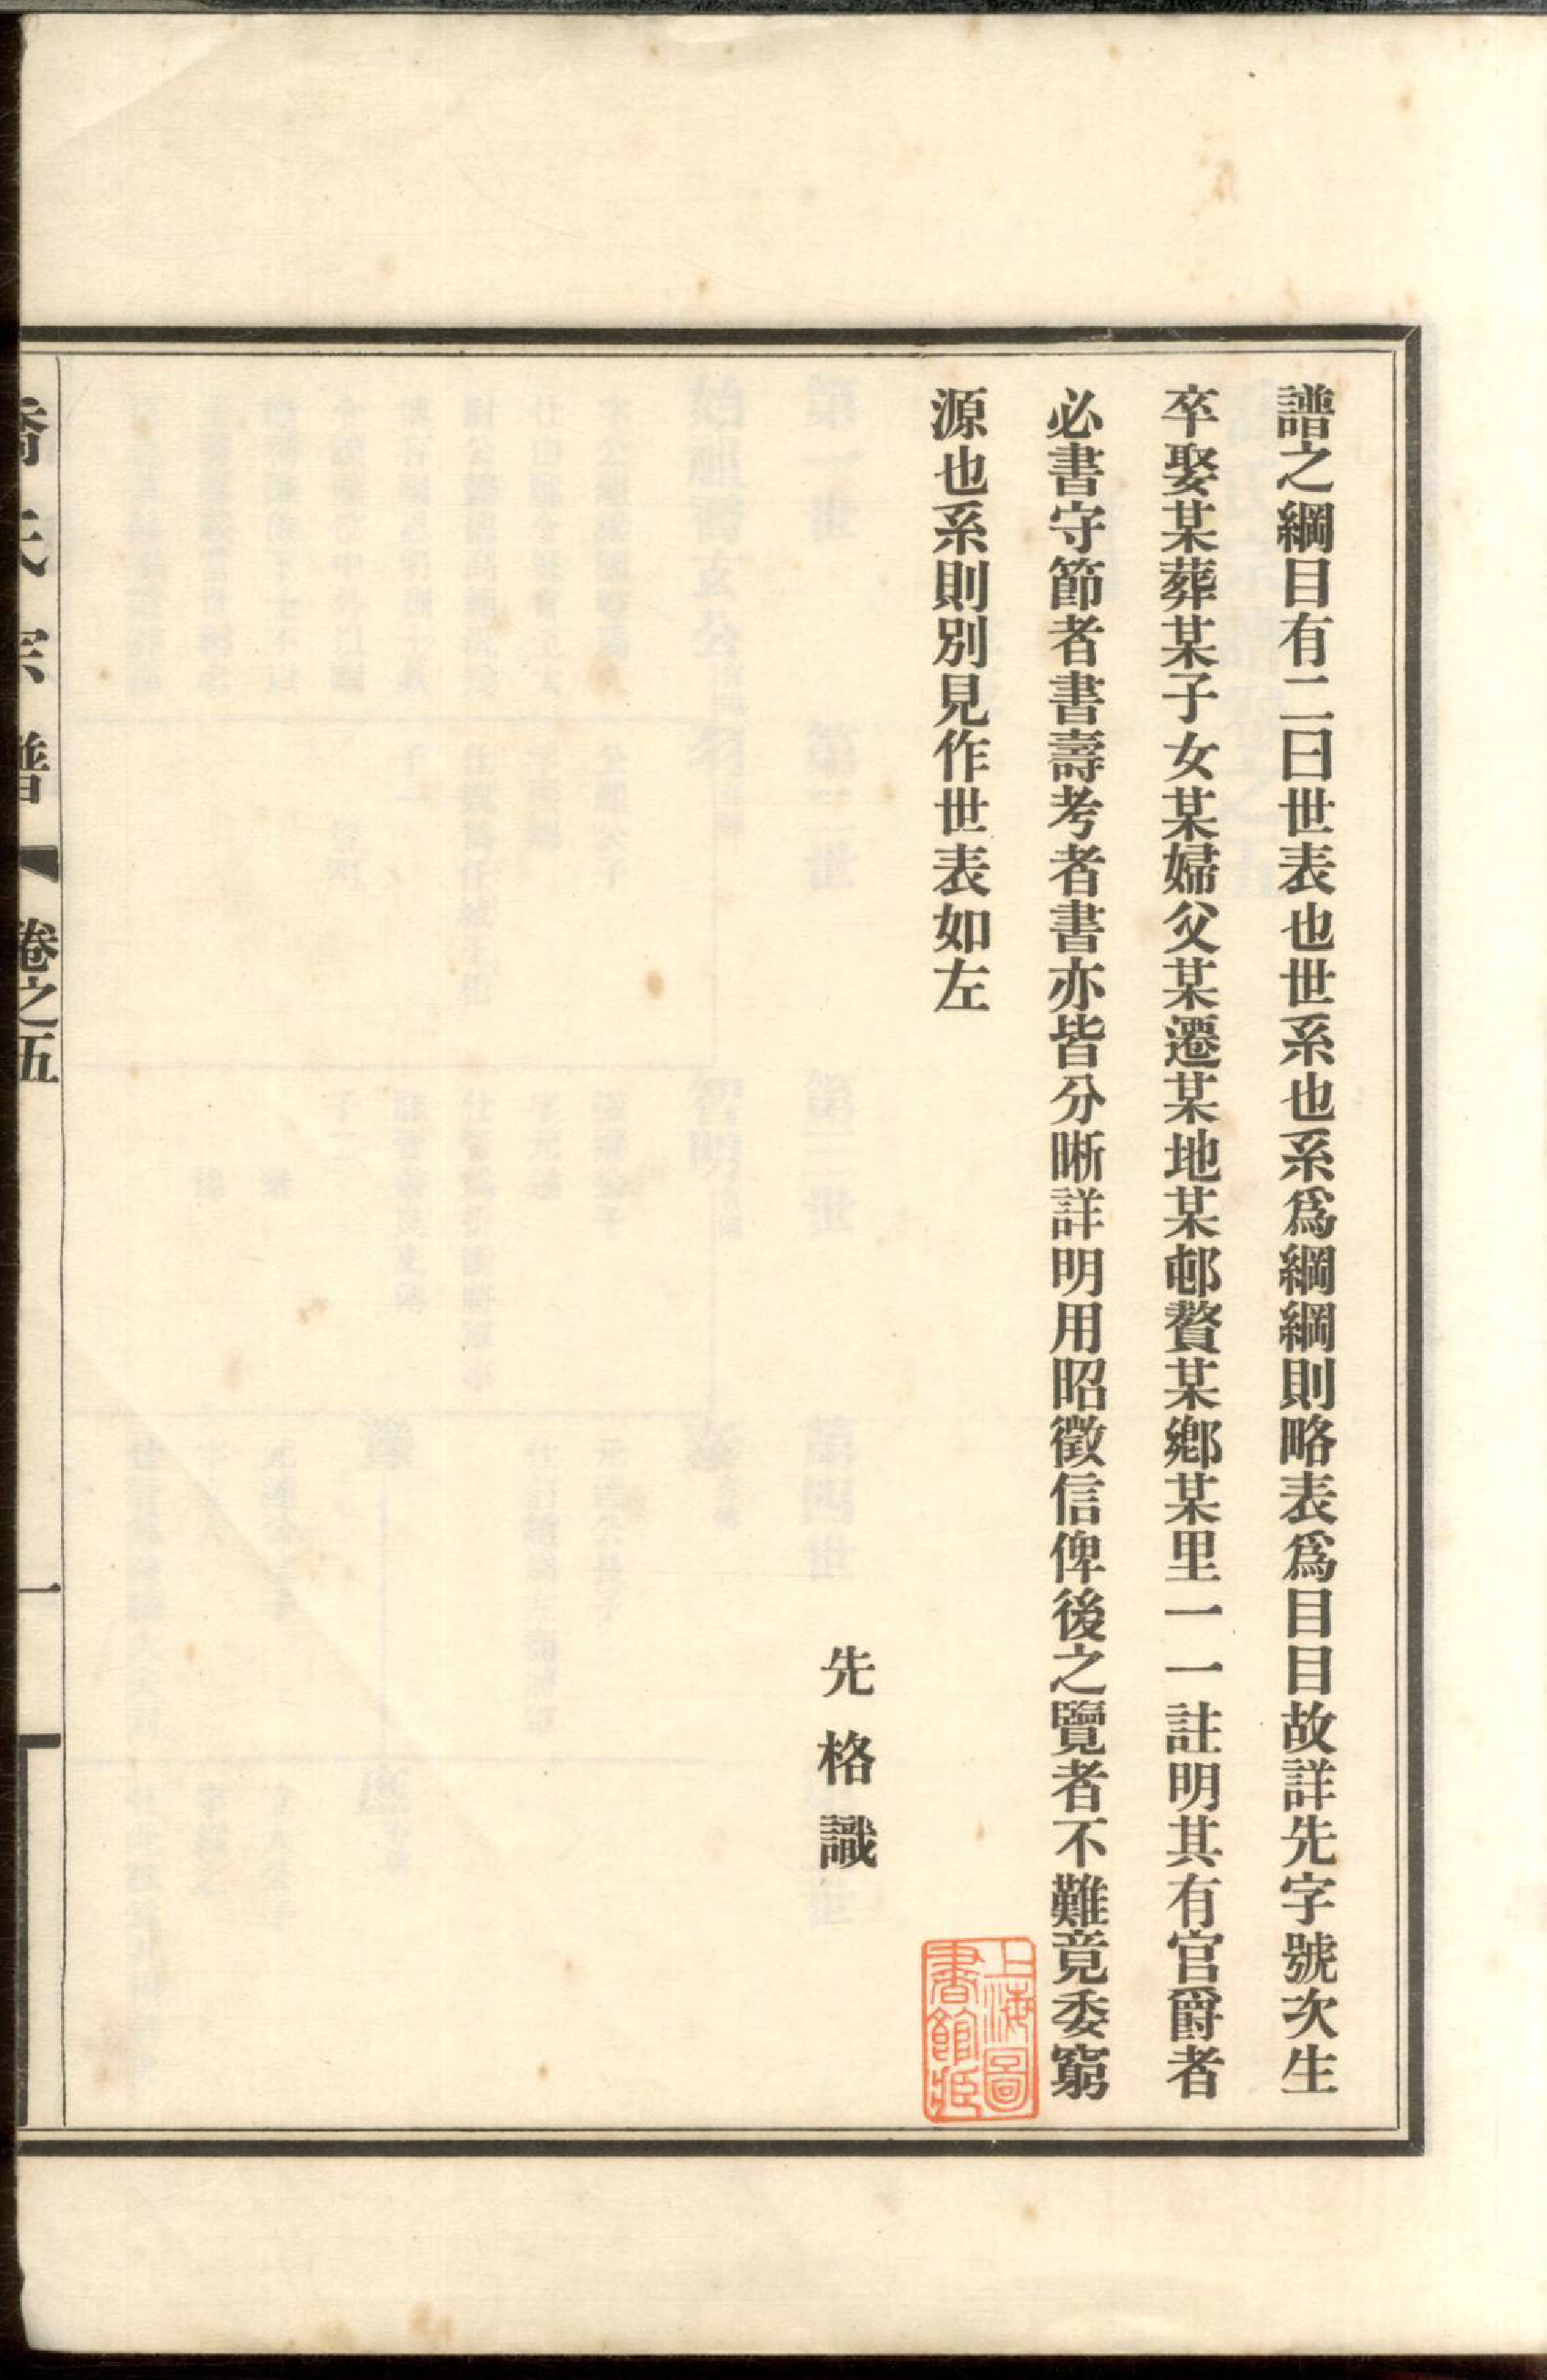 譜之綱目有二曰世表也世系也系爲綱綱則略表爲目目故詳先字號次生
卒娶某葬某子女某婦父某遷某地某邨贅某鄉某里一一註明其有官爵者
必書守節者書壽考者書亦皆分晰詳明用昭徵信俾後之覽者不難竟委窮
源也系則別見作世表如左
先格識
上海圖
書館藏
喬氏宗譜 卷之五 一